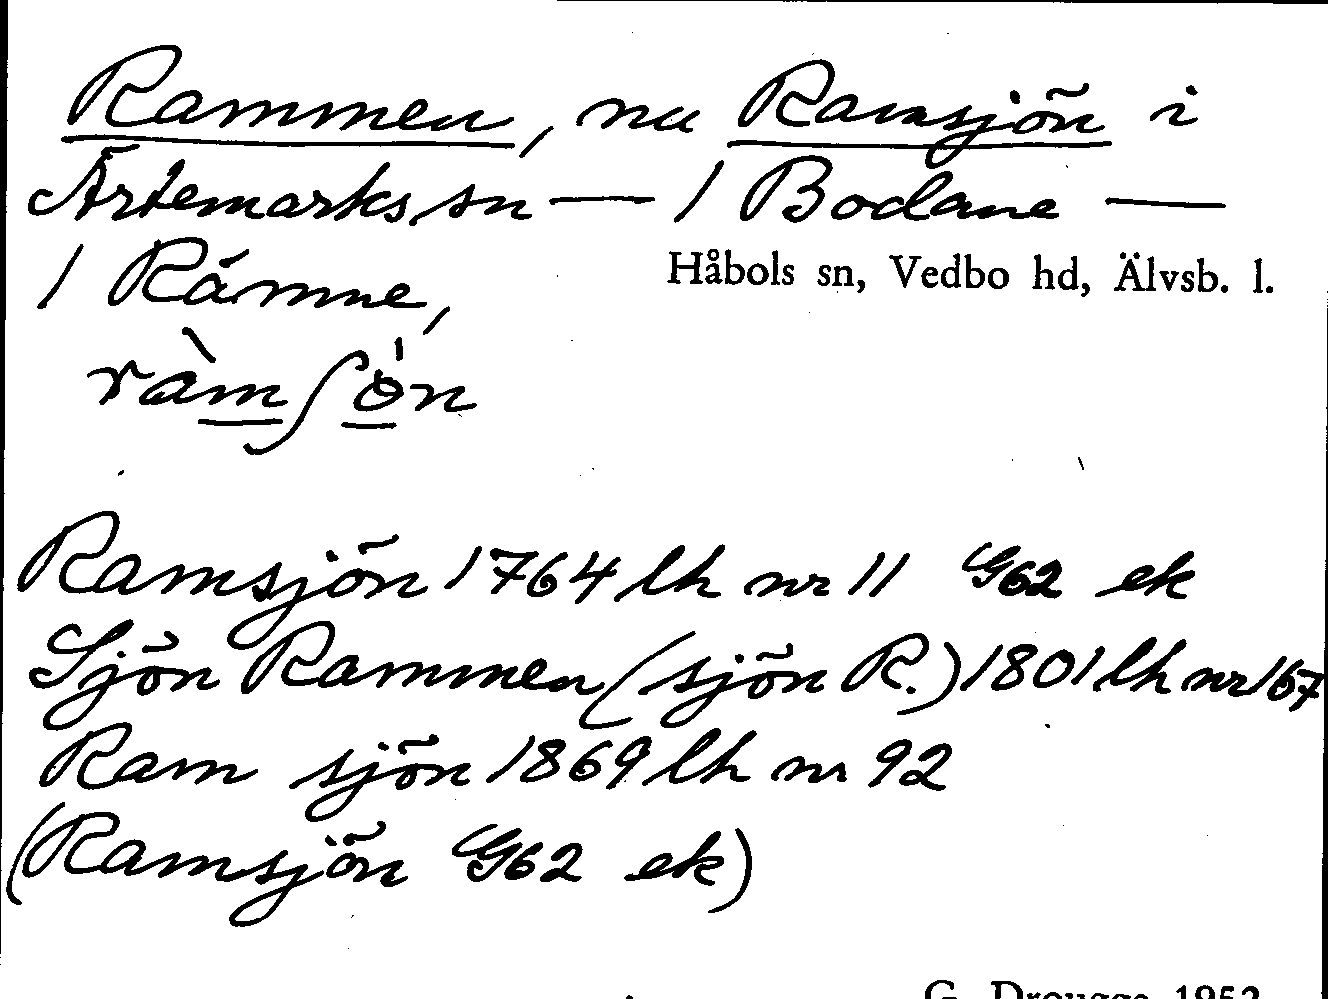 Rammen, nu Ramsjön i
Ärtemarks sn — / Bodane —
/ Råmne, Håbols sn, Vedbo hd, Älvsb. l.
Ramsjön 1764 lh nr 11 G62 ek
Sjön Rammen (sjön R.) 1801 lh nr 167
Ram sjön 1869 lh nr 92
(Ramsjön G62 ek)